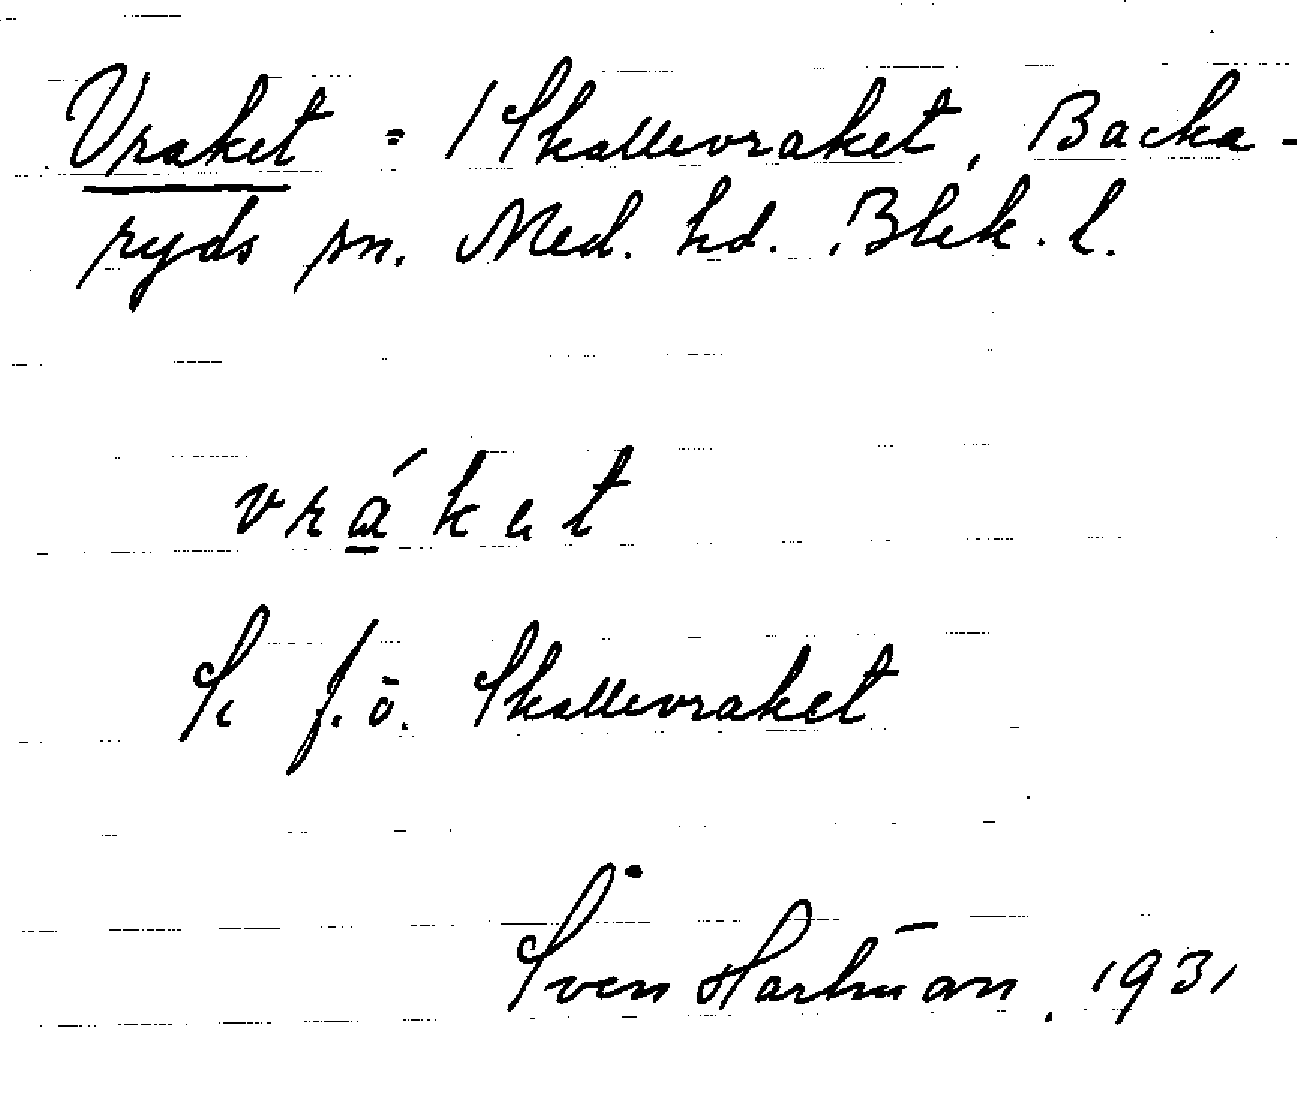 Vraket = /Skallevraket, Backa-
ryds sn. Med. hd. Blek. l.
vrá̲ket
Se f.ö. Skallevraket
Sven Hartman. 1931